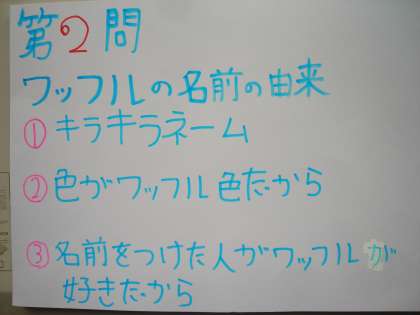 第2問
ワッフルの名前の由来
① キラキラネーム
② 色がワッフル色だから
③ 名前をつけた人がワッフルが
好きだから